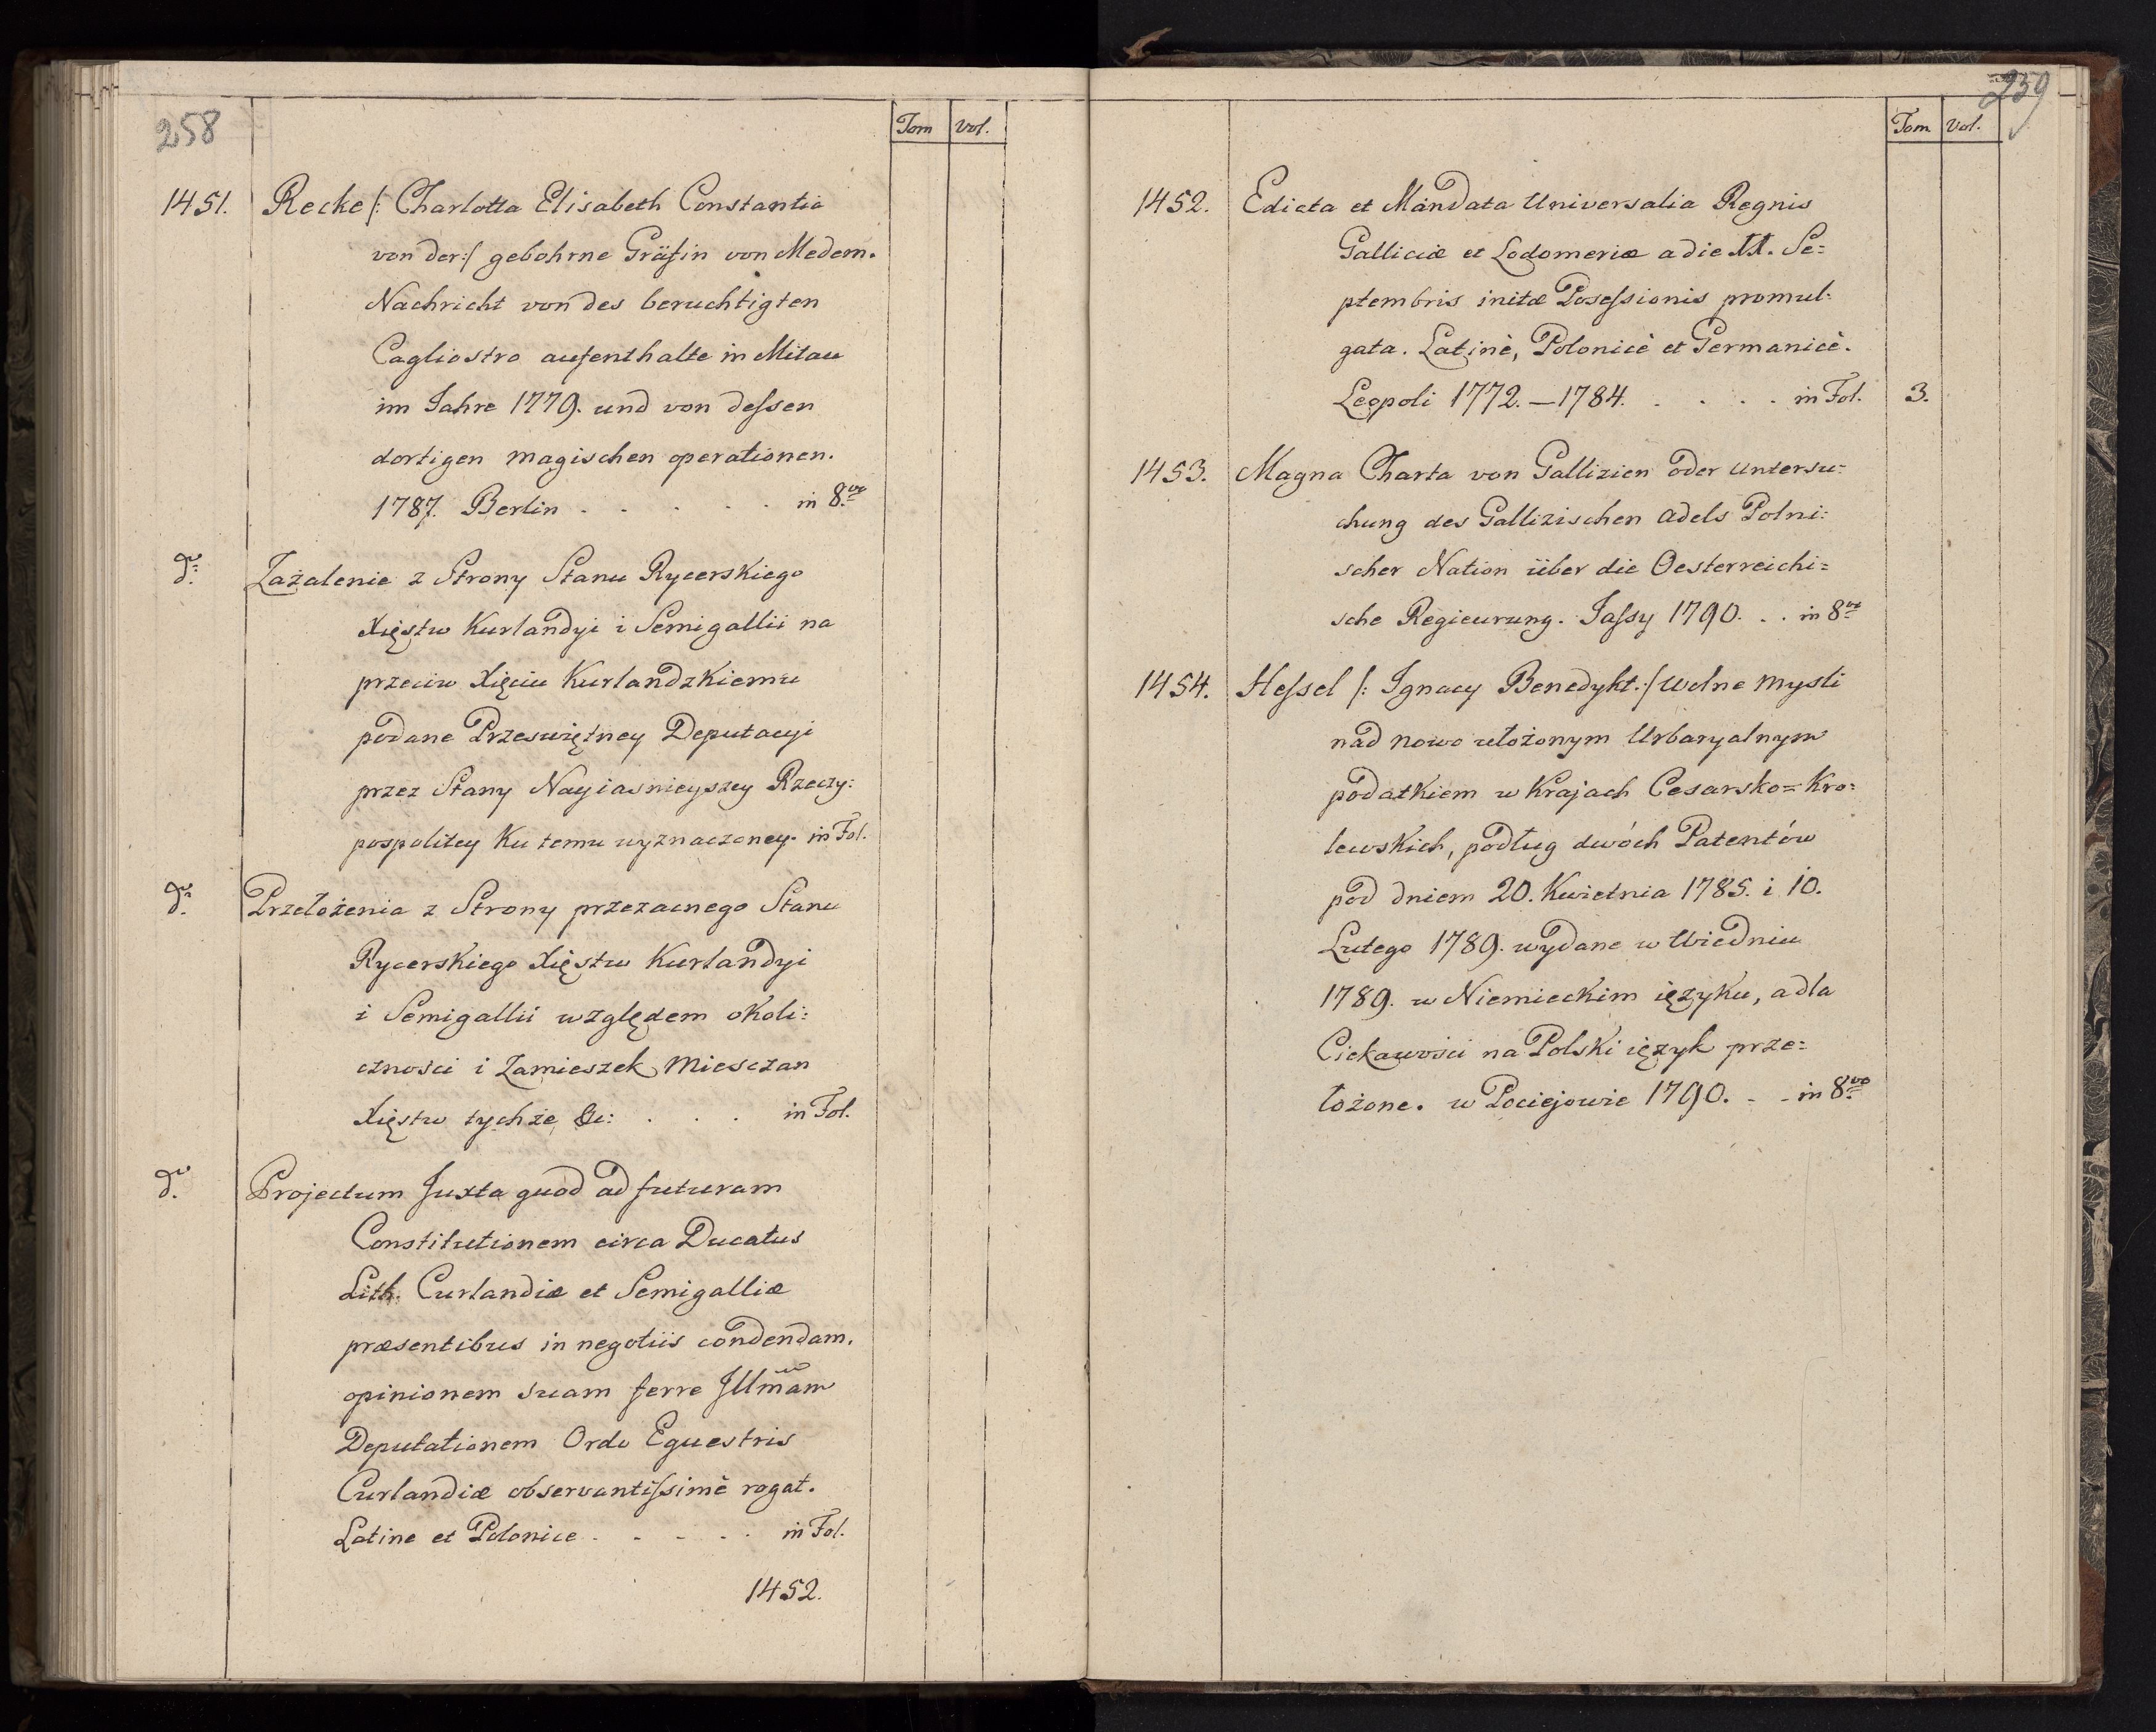 258
Tom Vol.
1451. Recke /: Charlotta Elisabeth Constantia
von der :/ gebohrne Gräfin von Medem.
Nachricht von des beruchtigten
Cagliostro aufenthalte in Mitau
im Jahre 1779. und von deſsen
dortigen magischen operationen.
1787. Berlin . . . . . in 8.vo
do. Zażalenie z Strony Stanu Rycerskiego
Xięstw Kurlandyi i Semigallii na
przeciw Xięciu Kurlandzkiemu
podane Przeświętney Deputacyi
przez Stany Nayiasnieyszey Rzeczy:
pospolitey Ku temu wyznaczoney. in Fol.
do. Przełożenia z Strony przezacnego Stanu
Rycerskiego Xięstw Kurlandyi
i Semigallii względem okoli:
cznosci i Zamieszek Miesczan
Xięstw tychże &c: . . . in Fol.
do. Projectum Juxta quod ad futuram
Constitutionem circa Ducatus
Lith. Curlandiæ et Semigalliæ
præsentibus in negotiis condendam.
opinionem suam ferre Jllm̃am
Deputationem Ordo Equestris
Curlandiæ observantiſsimè rogat.
Latine et Polonice . . . . . in Fol.
1452.
259
Tom Vol.
1452. Edicta et Mandata Universalia Regnis
Galliciæ et Lodomeriæ a die 11. Se=
ptembris initæ Poseſsionis promul:
gata. Latinè, Polonicè et Germanicè.
Leopoli 1772.—1784. . . . . in Fol. 3.
1453. Magna Charta von Gallizien oder untersu:
chung des Gallizischen adels Polni:
scher Nation über die Oesterreichi=
sche Regieurung. Jaſsy 1790. . . in 8vo
1454. Heſsel /: Ignacy Benedykt :/ Wolne mysli
nad nowo ułożonym Urbaryalnym
podatkiem w Krajach Cesarsko=Kro=
lewskich, podług dwóch Patentów
pod dniem 20. Kwietnia 1785. i 10.
Lutego 1789. wydane w Wiedniu
1789. w Niemieckim ięzyku, a dla
Ciekawości na Polski ięzyk prze=
łożone. w Pociejowie 1790. . . in 8.vo